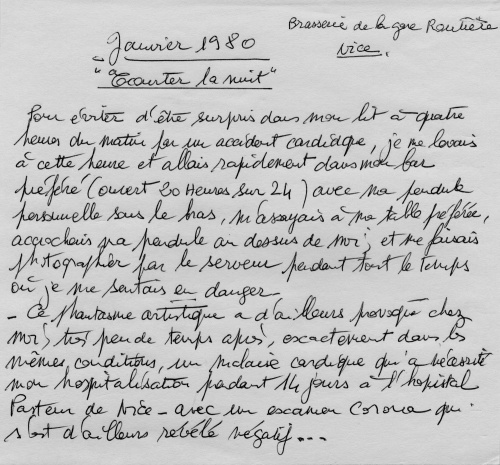 Brasserie de la gare Routière
Nice.
Janvier 1980
"Ecourter la nuit"
Pour éviter d'être surpris dans mon lit à quatre
heures du matin par un accident cardiaque, je me levais
à cette heure et allais rapidement dans mon bar
préféré (ouvert 20 Heures sur 24) avec ma pendule
personnelle sous le bras, m'assayais à ma table préférée,
accrochais ma pendule au dessus de moi, et me faisais
photographier par le serveur pendant tout le temps
où je me sentais en danger
- Ce phantasme artistique a d'ailleurs provoqué chez
moi, très peu de temps après, exactement dans les
mêmes conditions, un malaise cardiaque qui a nécessité
mon hospitalisation pendant 14 jours à l'hopital
Pasteur de Nice - avec un examen Corona qui
s'est d'ailleurs rébélé négatif...